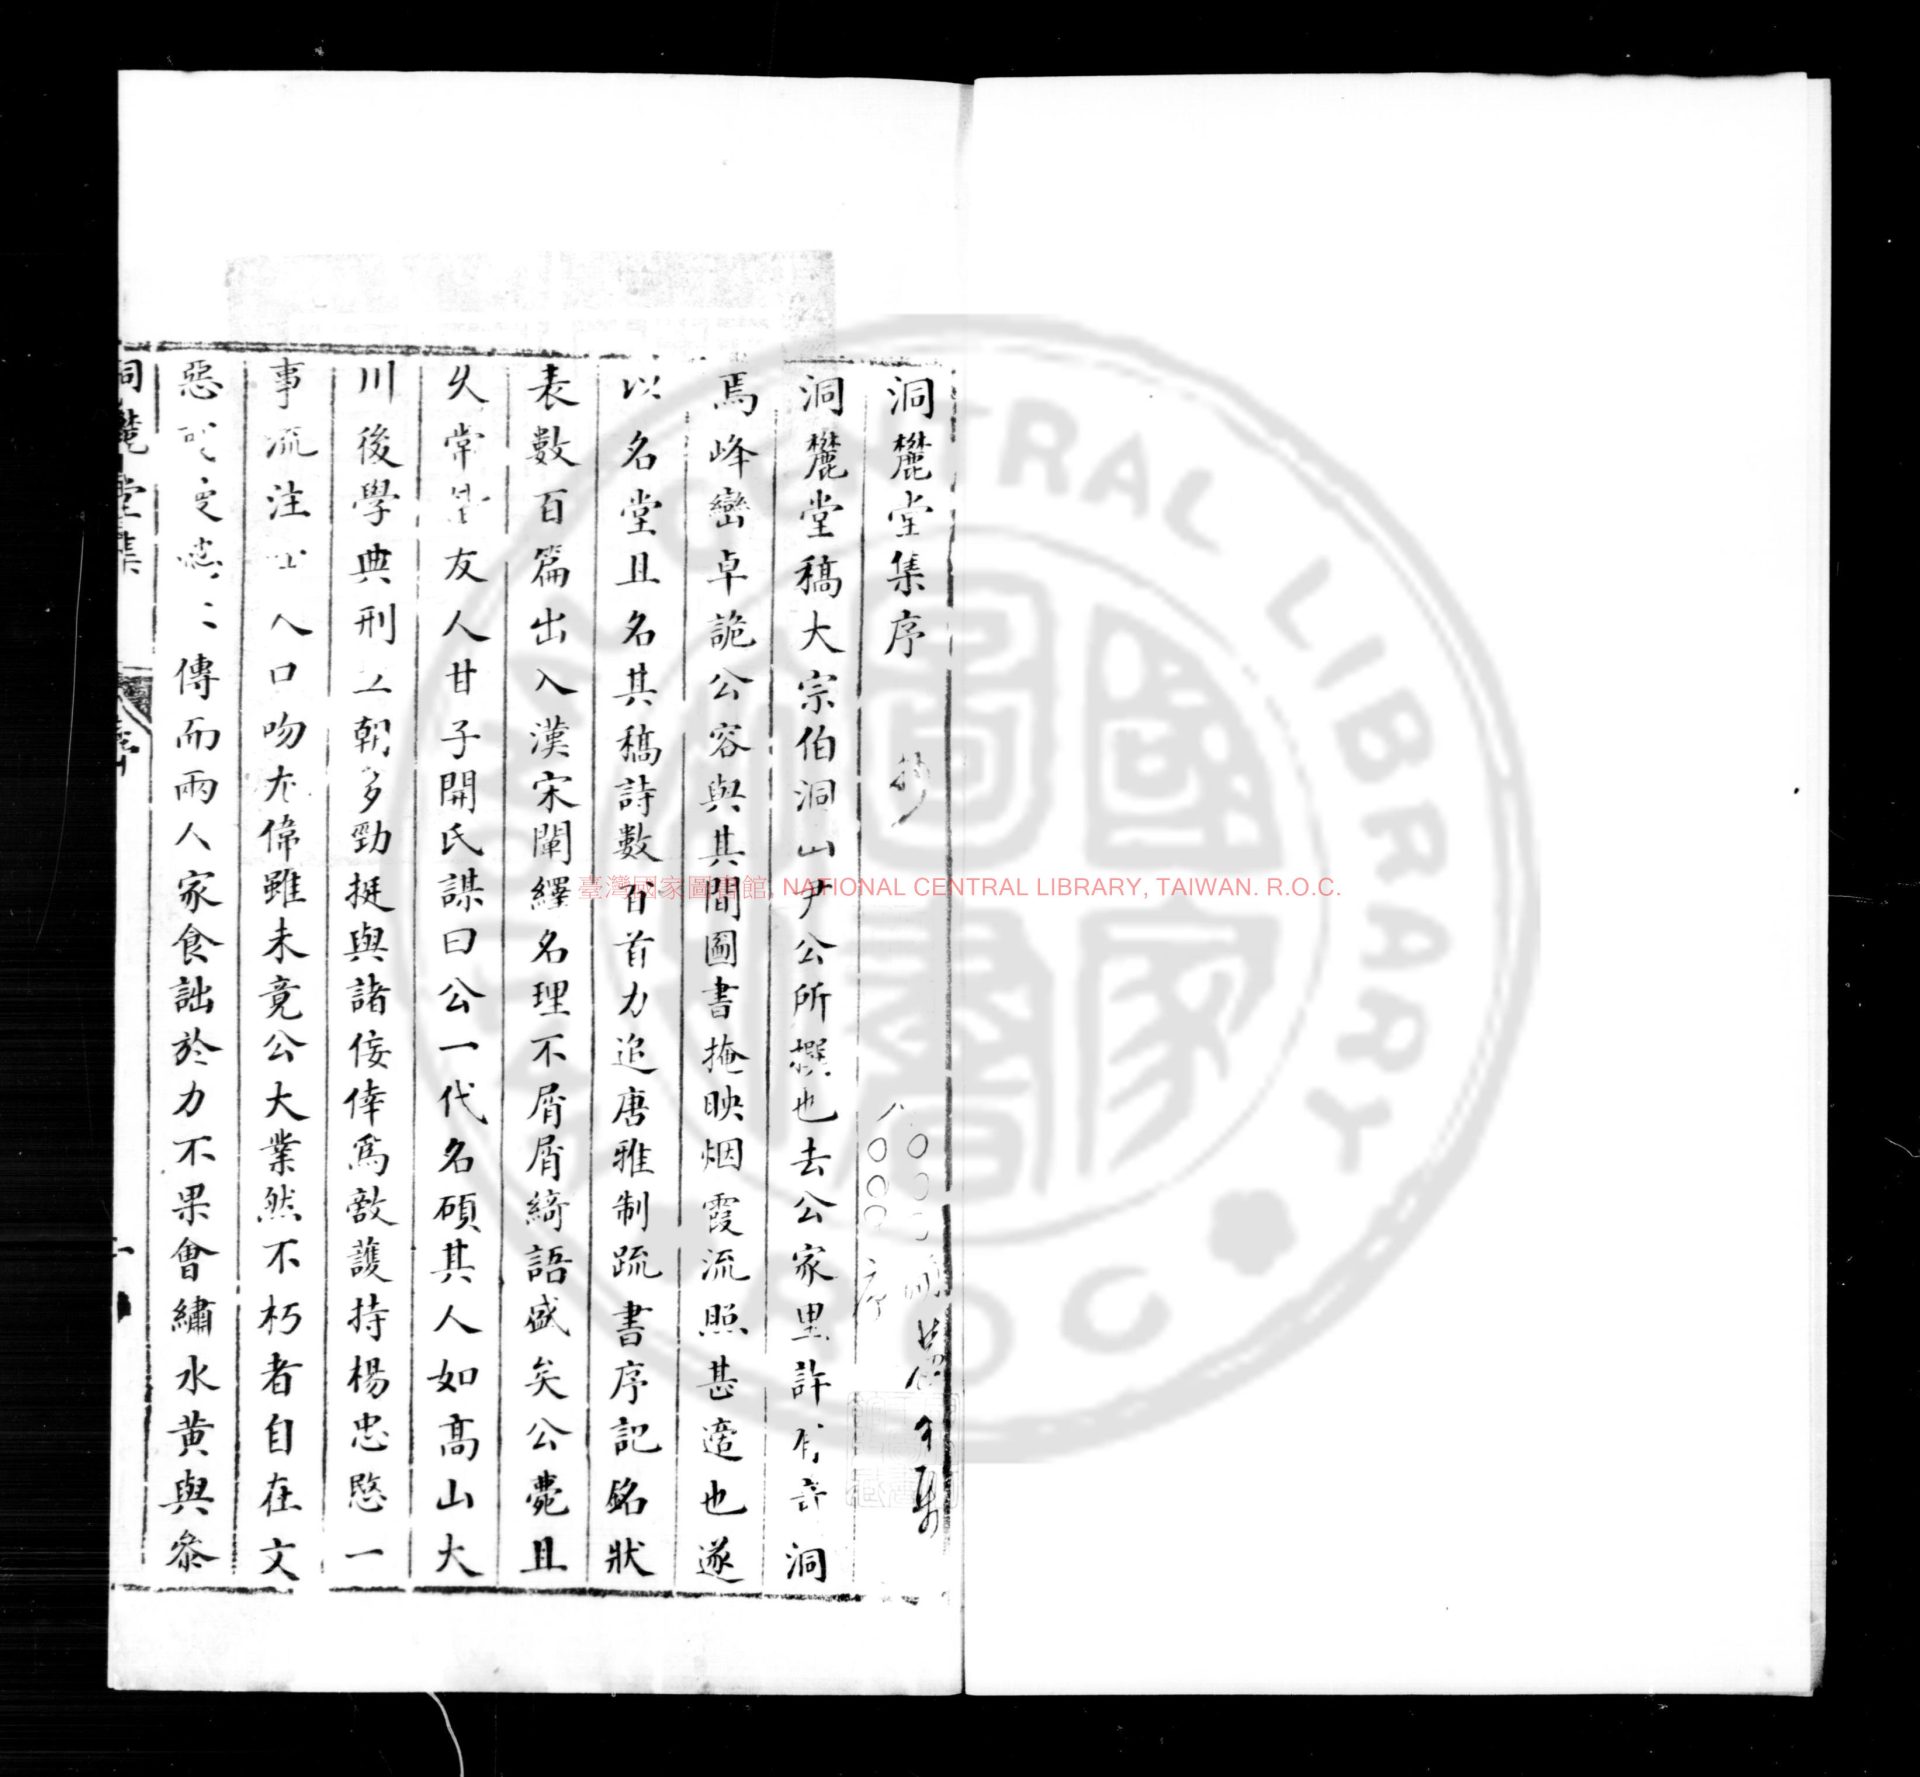 洞麓堂集序
洞麓堂稿大宗伯洞山尹公所撰也去公家里許有奇洞
焉峰巒卓詭公容與其間圖書掩映烟霞流照甚適也遂
以名堂且名其稿詩數百首力追唐雅制疏書序記銘狀
表數百篇出入漢宋闡繹名理不屑屑綺語盛矣公薨且
久常 友人甘子開氏謀曰公一代名碩其人如高山大
川後學典刑立朝多勁挺與諸佞倖爲敵護持楊忠愍一
事流注 人口吻尤偉雖未竟公大業然不朽者自在文
惡 傳而兩人家食詘於力不果會繡水黄與參
洞麓堂集 序
臺灣國家圖書館, NATIONAL CENTRAL LIBRARY, TAIWAN. R.O.C.
NATIONAL CENTRAL LIBRARY
R O C
國家圖書